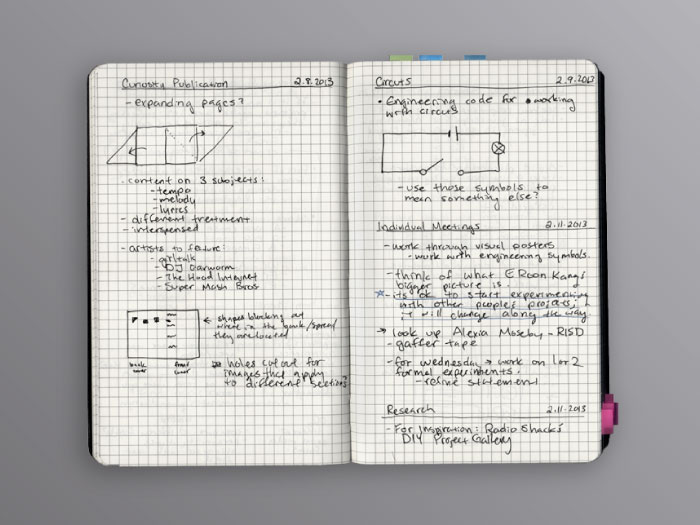 Curiosity Publication 2.8.2013
- expanding pages?
- content on 3 subjects:
- tempo
- melody
- lyrics
- different treatment
- interspensed
- artists to feature:
- girltalk
- DJ Earworm
- The Hood Internet
- Super Mash Bros
← shapes blocking out
where in the book/spread
they are located
back cover
front cover
holes cut out for
images that apply
to different sections?
Circuts 2.9.2013
• Engineering code for working
with circuts
- use those symbols to
mean something else?
Individual Meetings 2.11.2013
- work through visual posters
- work with engineering symbols.
- think of what E Roon Kang's
bigger picture is.
- its ok to start experimenting
with other peoples projects,
it will change along the way
→ look up Alexia Moseby - RISD
- gaffer tape
- for wednesday → work on 1 or 2
formal experiments.
- refine statement
Research 2.11.2013
- For Inspiration: Radio Shack's
DIY Project Gallery